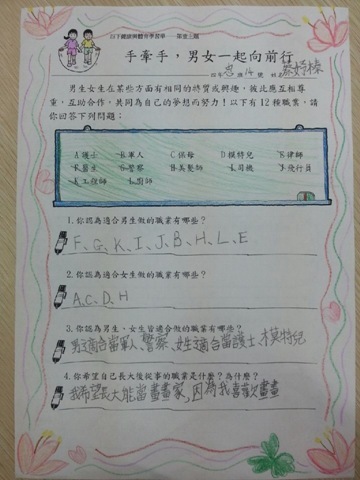 健康與體育學習單
手牽手，男女一起向前行
四年 忠 班 14 號 姓名
男生女生在某些方面有相同的特質或興趣，彼此應互相尊
重、互助合作，共同為自己的夢想而努力！以下有12種職業，請
你回答下列問題：
A.護士 B.軍人 C.保母 D.模特兒 E.律師
F.醫生 G.警察 H.美髮師 I.司機 J.飛行員
K.工程師 L.廚師
1.你認為適合男生做的職業有哪些？
F、G、K、I、J、B、H、L、E
2.你認為適合女生做的職業有哪些？
A、C、D、H
3.你認為男生，女生皆適合做的職業有哪些？
男生適合當軍人、警察、女生適合當護士、模特兒
4.你希望自己長大後從事的職業是什麼？為什麼？
我希望長大能當畫畫家，因為我喜歡畫畫